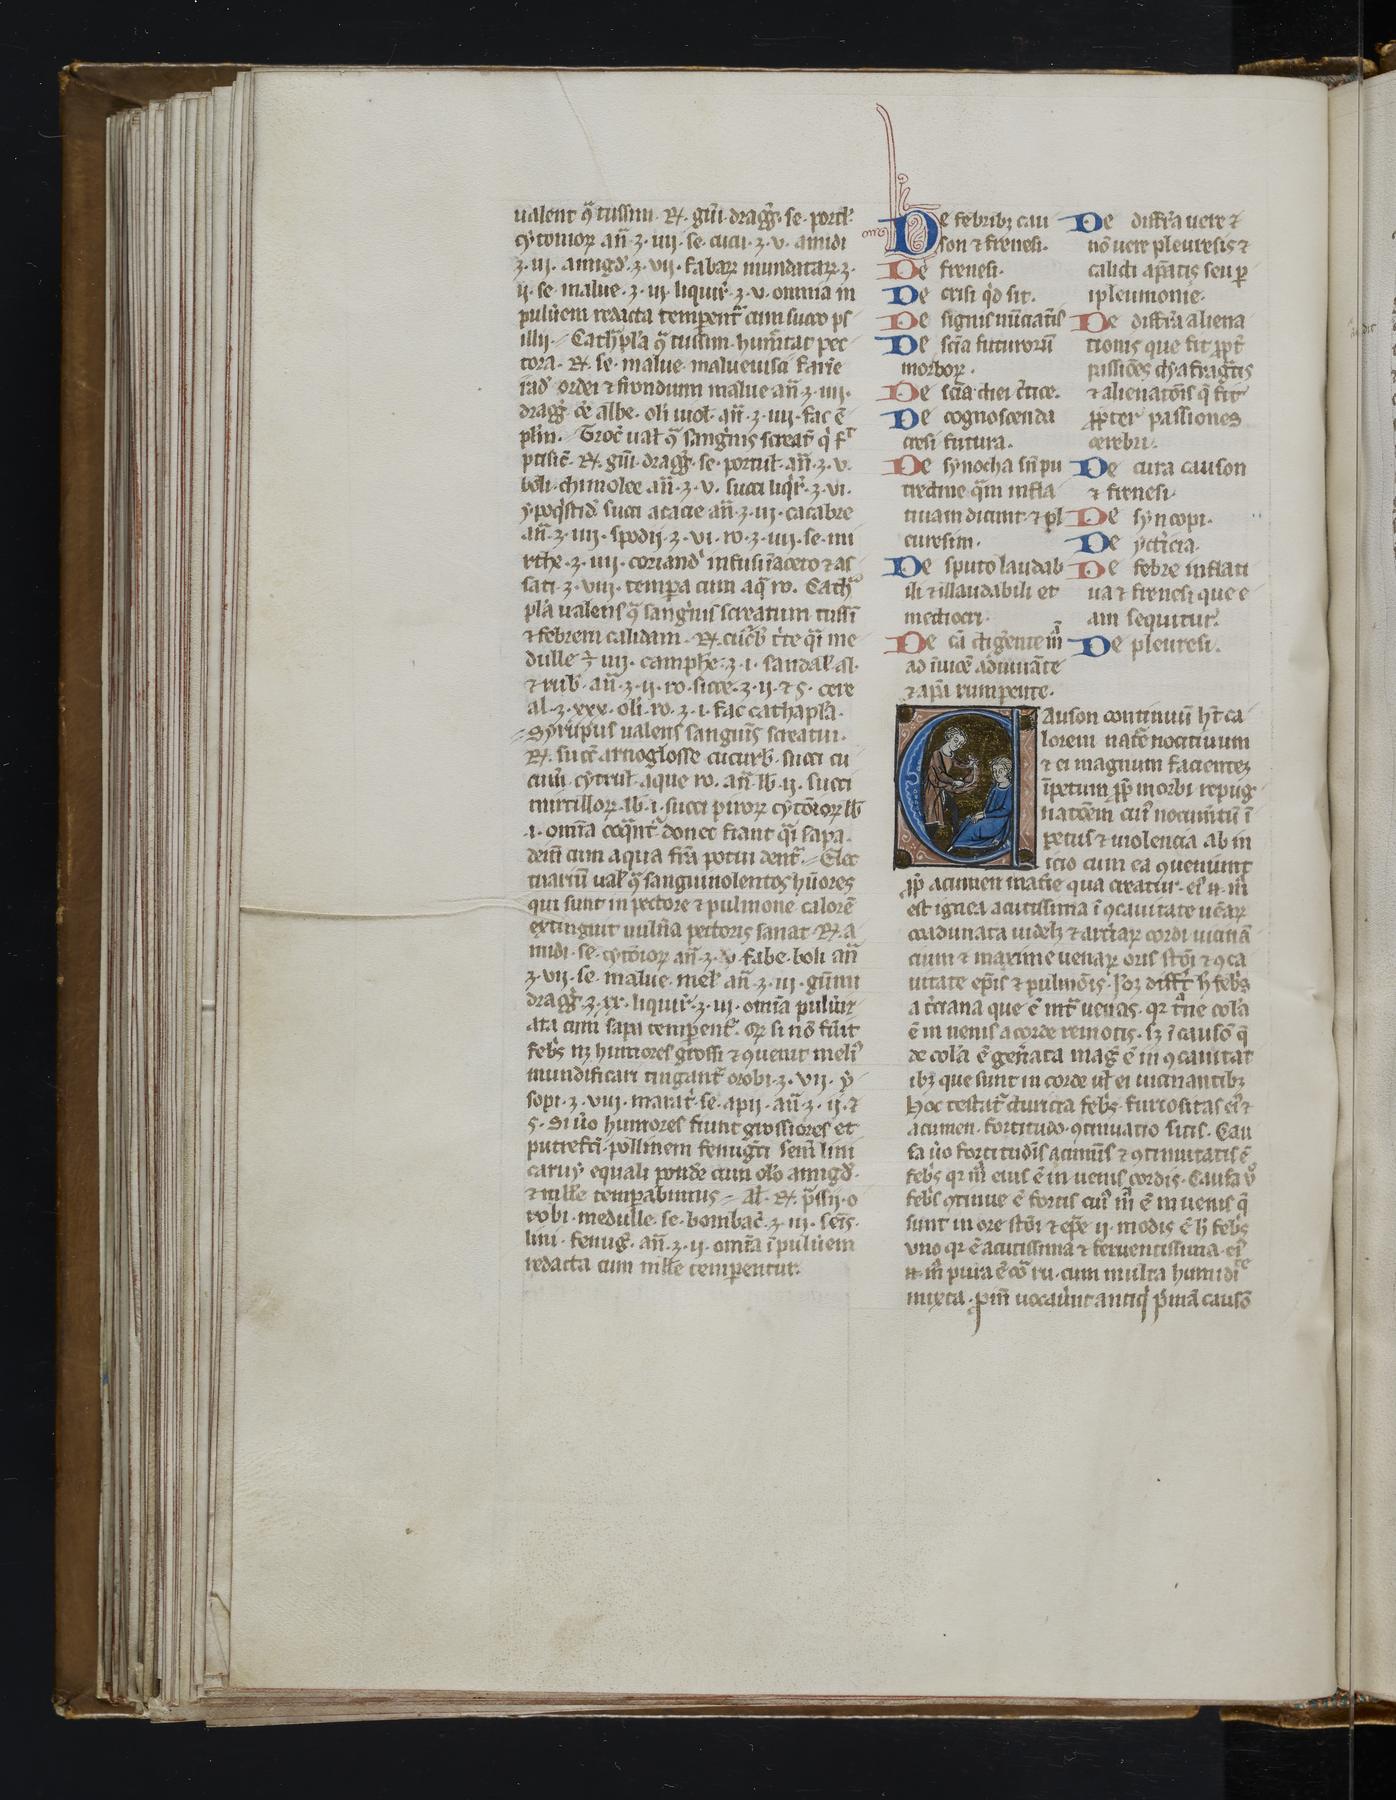 ualent q̄ tussim. ℞. gūi. dragg̃. se. portl̃.
cytonioꝝ añ. ʒ. iiij. se. cucū. ʒ. v. amidi
ʒ. iij. amigd̃. ʒ. vij. fabaꝝ mundataꝝ. ʒ.
ij. se. malue. ʒ. iij. liquir̃. ʒ. v. omnia in
puluerem redacta temperent̃ cum succo ps
illij. Cathꝑla q̄ tussim. humc̃tat pec
tora. ℞. se. malue. malueuisci farīe
ordei ⁊ frondium malue añ. ʒ. iiij.
dragg̃. cē albe. oli uiol̃. añ. ʒ. iiij. fac ē
plm̃. Troc̃ ual̃ q̄ sanguīs screat̃ q̇ fr̃
ptisic̃. ℞. gūi. dragg̃. se. portul̃. añ. ʒ. v.
boli. chimolee añ. ʒ. v. succi liqr̃. ʒ. vi.
ypoq̇stid̃. succi acacie añ. ʒ. iij. cacabre
añ. ʒ. iiij. spodij. ʒ. vi. ro. ʒ. iiij. se. mi
rthe. ʒ. iiij. coriand̃ infusi ī aceto ⁊ as
sati. ʒ. viij. temp̃a cum aq̄ ro. Cath̃
pla ualens q̄ sanguīs screatum tussī
⁊ febrem calidam. ℞. cuc̃b̃ t̃te q̄i me
dulle ℥ iiij. camphe. ʒ. i. sandal̃ al.
⁊ rub̃. añ. ʒ. ij. ro. sicce. ʒ. ij. ⁊ s̄. cere
al. ʒ. xxx. oli. ro. ʒ. i. fac cathapla.
Syrupus ualens sanguīs screatui.
℞. succ̃ arnoglosse cucurb̃. succi cu
cum̃. cytrul̃. aque ro. añ. lb. ij. succi
mirtilloꝝ. lb. i. succi piroꝝ cytonioꝝ lb̃
.i. omīa coq̄nt̃ donec fiant q̄i sapa.
deīn cum aqua fr̃a potui dent̃. Elec
tuariū ual̃ q̄ sanguinolentos hūores
qui sunt in pectore ⁊ pulmone calorē
extinguit uulñia pectoris sanat ℞. a
midi. se. cytonioꝝ añ. ʒ. v. fabe. boli añ
ʒ. vij. se. malue. mel̃. añ. ʒ. iij. gūmi
dragg̃. ʒ. xx. liquir̃. ʒ. iij. omīa puluer
ata cum sapa temperent̃. Qr̃ si nō fūit
feb̃s nꝫ humores grossi ⁊ ꝗuenit meli᷒
mundificari tingant̃ orobi. ʒ. vij. y
sopi. ʒ. viij. marat̃. se. apij. añ. ʒ. ij. ⁊
s̄. Si ūo humores fiunt grossiores et
putrefc̃i. pollinem fenugc̃i sem̃ lini
caruy equali ponde cum oleo amigd̃.
⁊ melle temperabimus. Al. ℞. p̃ssij. o
robi. medulle. se. bombac̃. ʒ. iij. sem̃s.
lini. fenug̃. añ. ʒ. ij. omīa ī puluerem
redacta cum melle temperentur.
De febribꝫ cau
son ⁊ frenesi.
De frenesi.
De crisi qd̃ sit.
De signis nūciatīs
De scīa futuroruꝫ
morboꝝ.
De scīa diei c̃tice.
De cognoscenda
cresi futura.
De synocha sn̄ pu
tredine q̄m infla
tiuam dicunt ⁊ pl
euresim.
De sputo laudab
ili ⁊ illaudabili et
mediocri.
De cā digerente m̄
ad īuicē adiuuāte
⁊ apīa rumpente.
De diffr̄a uere ⁊
nō uere pleuresis ⁊
calidi apatis seu ꝑ
ipleumonie.
De diffr̄a aliena
tionis que fit ꝓpt̃
passiōes dyafragt̃is
⁊ alienatōis q̄ fit
ꝓpter passiones
cerebri.
De cura causon
⁊ frenesi.
De syncopi.
De yctericia.
De febre inflati
ua ⁊ frenesi que e
am sequitur.
De pleuresi.
Causon continuū h̃t ca
lorem nat̃e nociuum
⁊ ei magnum facientem
īpetum ꝓp̃ morbi repug
natōem cui᷒ nocum̃tū ī
petus ⁊ uiolencia ab in
icio cum ea ꝗueniunt
ꝓp̃ acumen mat̃ie qua creatur. ei᷒ n̄. m̄
est ignea acutissima ī ꝗcauitate uenaꝝ
coadunata uidelꝫ ⁊ art̃iaꝝ cordi uicinā
cium ⁊ maxime uenaꝝ oris stōi ⁊ ꝗca
uitate epatis ⁊ pulmōis. Soꝫ differt h̄ feb̃s
a t̃ciana que ē int̃ uenas. qr̃ t̃ne col̃a
ē in uenis a corde remotis. sꝫ ī causō q̄
de col̃a ē gen̄ata mag̃ ē in ꝗcauitat
ibꝫ que sunt in corde ul̃ ei uicinantibꝫ
hoc testat̃ duricia feb̃s. furiositas ei᷒ ⁊
acumen. fortitudo. ꝗtinuatio sitis. Cau
sa ūo fortitudīs acumīs ⁊ ꝗtinuitatis ē
feb̃s qr̃ m̄ eius ē in uenis cordis. Causa ū
feb̃s ꝗtinue ē fortis cui᷒ m̄ ē in uenis q̄
sunt in ore stōi ⁊ epāe ij. modis ē h̄ feb̃s
vno qr̃ ē acutissima ⁊ feruentissima. ei᷒
n̄. m̄ pura ē cō ru. cum multa humidite
mixta. primū uocauerunt antiq̇ p̃mā causō